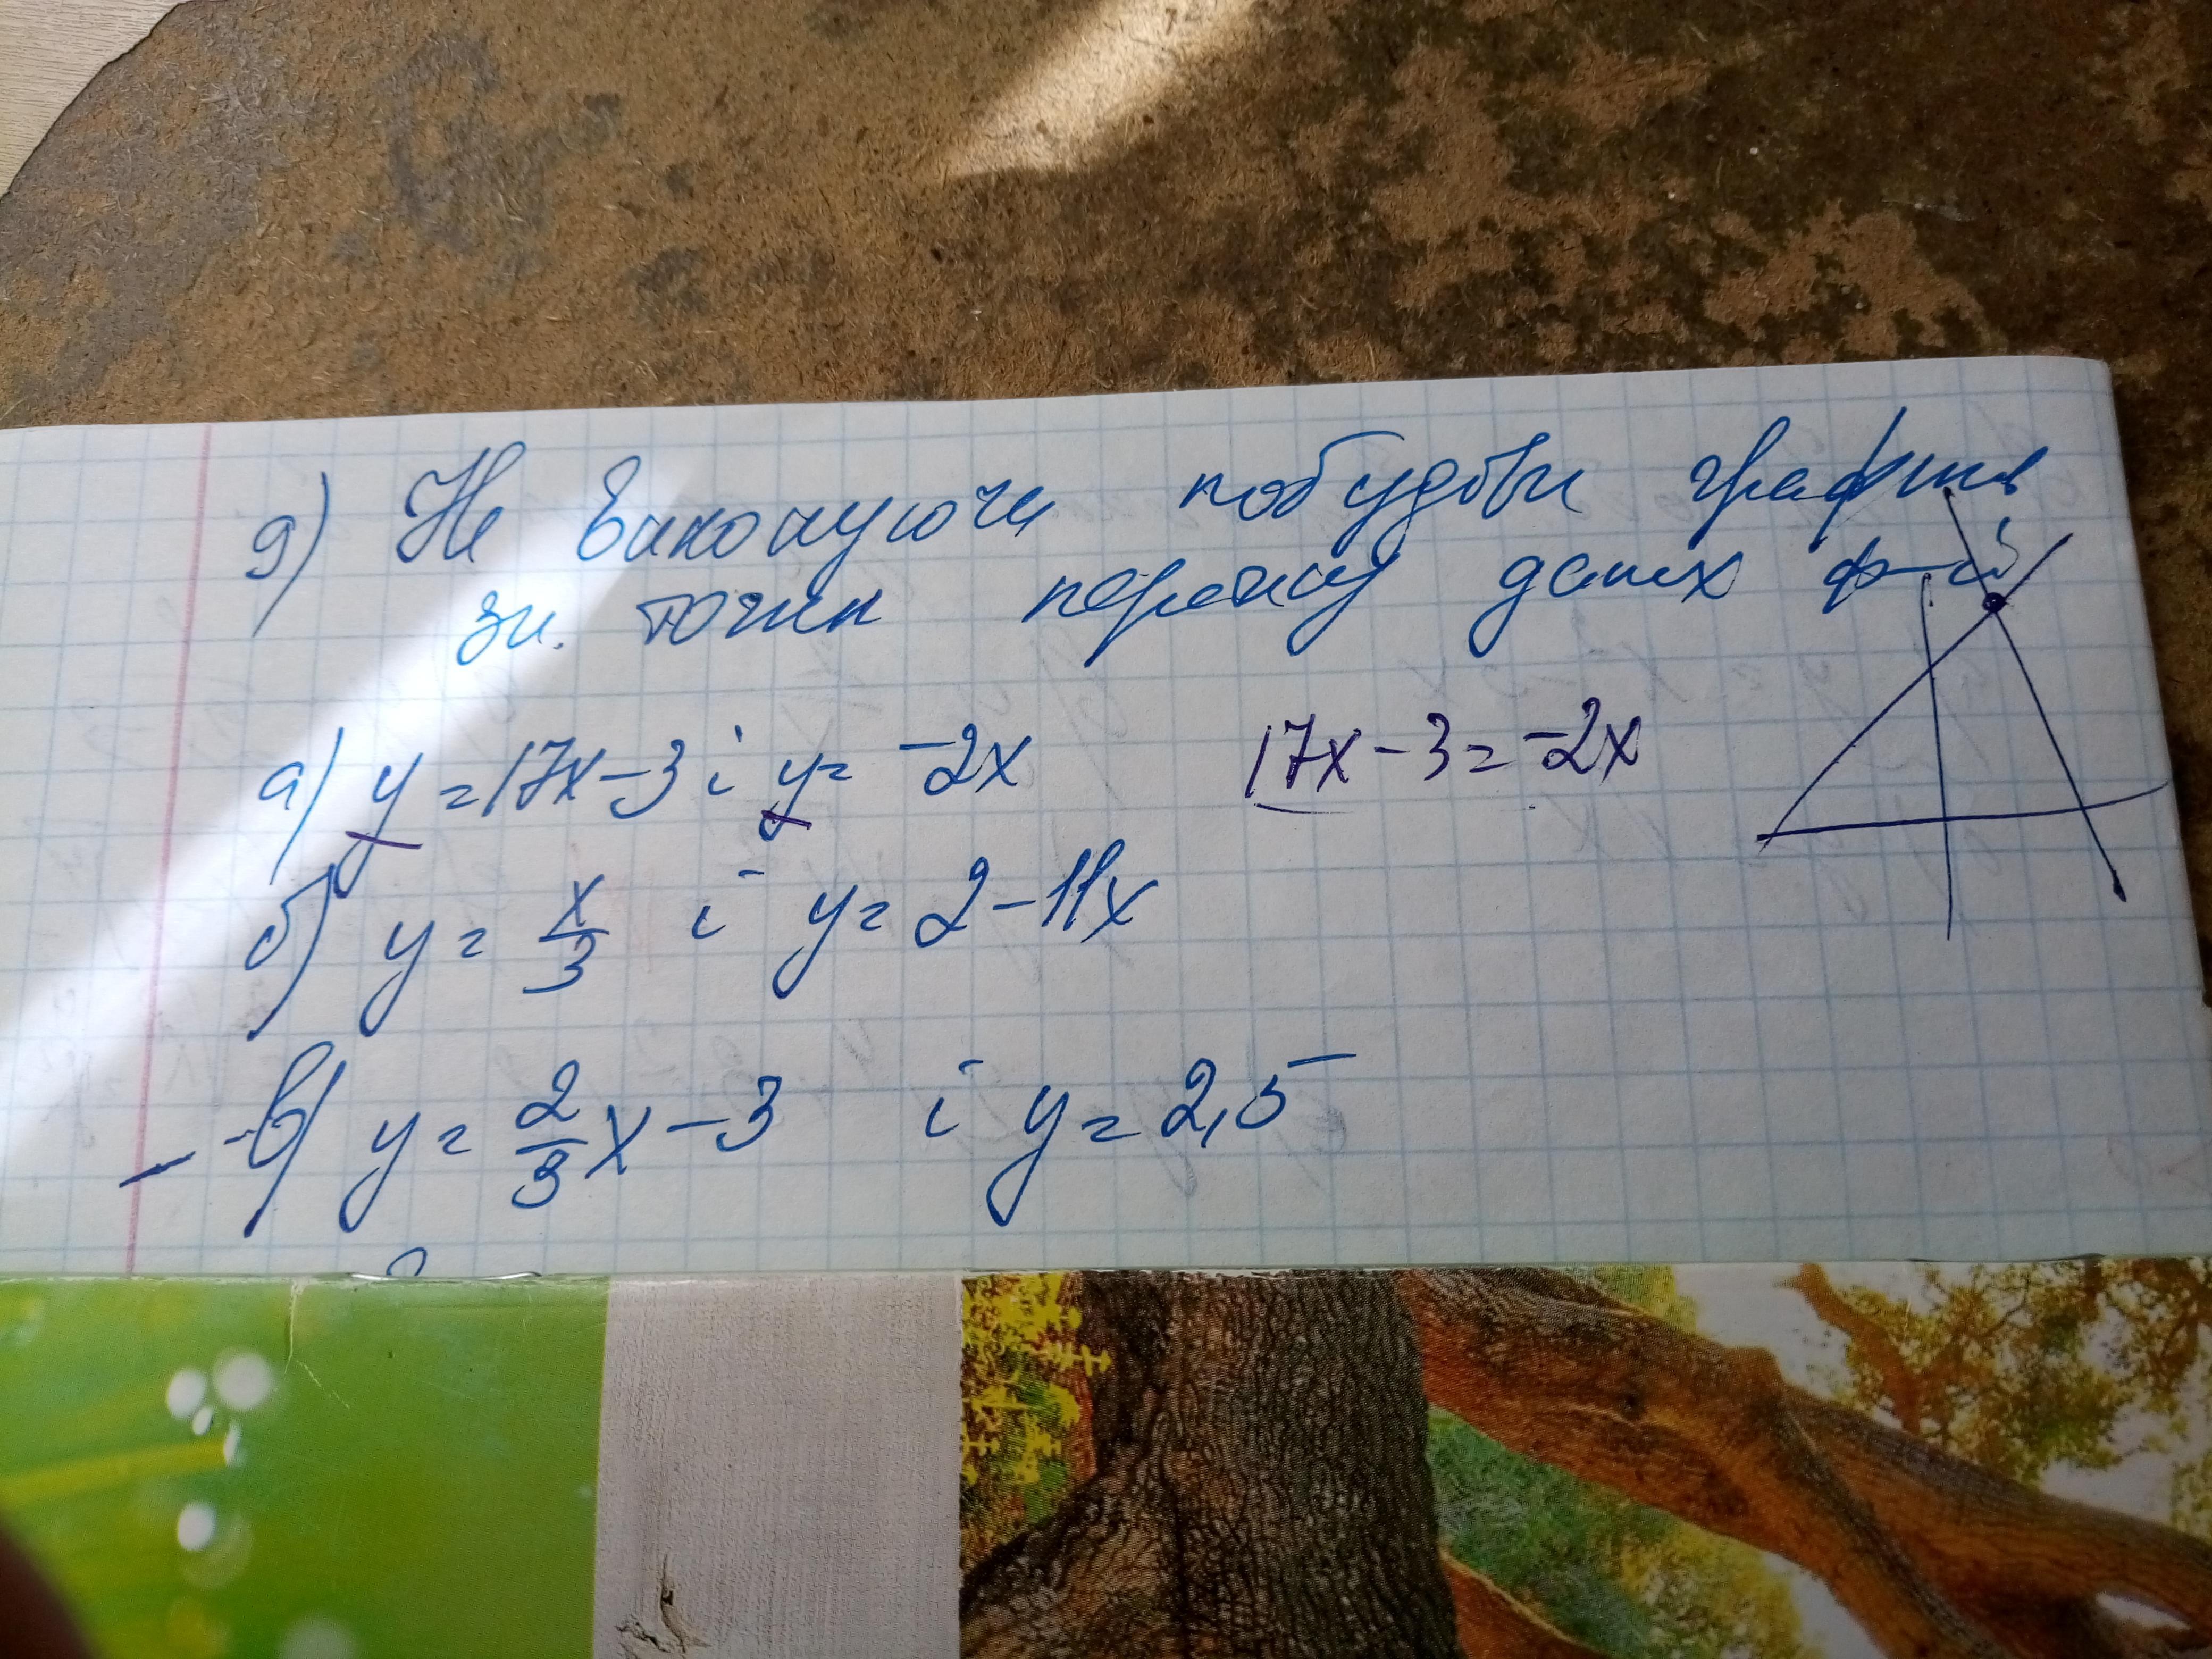 9) Не виконуючи побудови графіків
зн. точки перетину даних ф-й
а) y = 17x - 3 і y = -2x 17x - 3 = -2x
б) y = x/3 і y = 2 - 11x
в) y = 2/3 x - 3 і y = 2,5